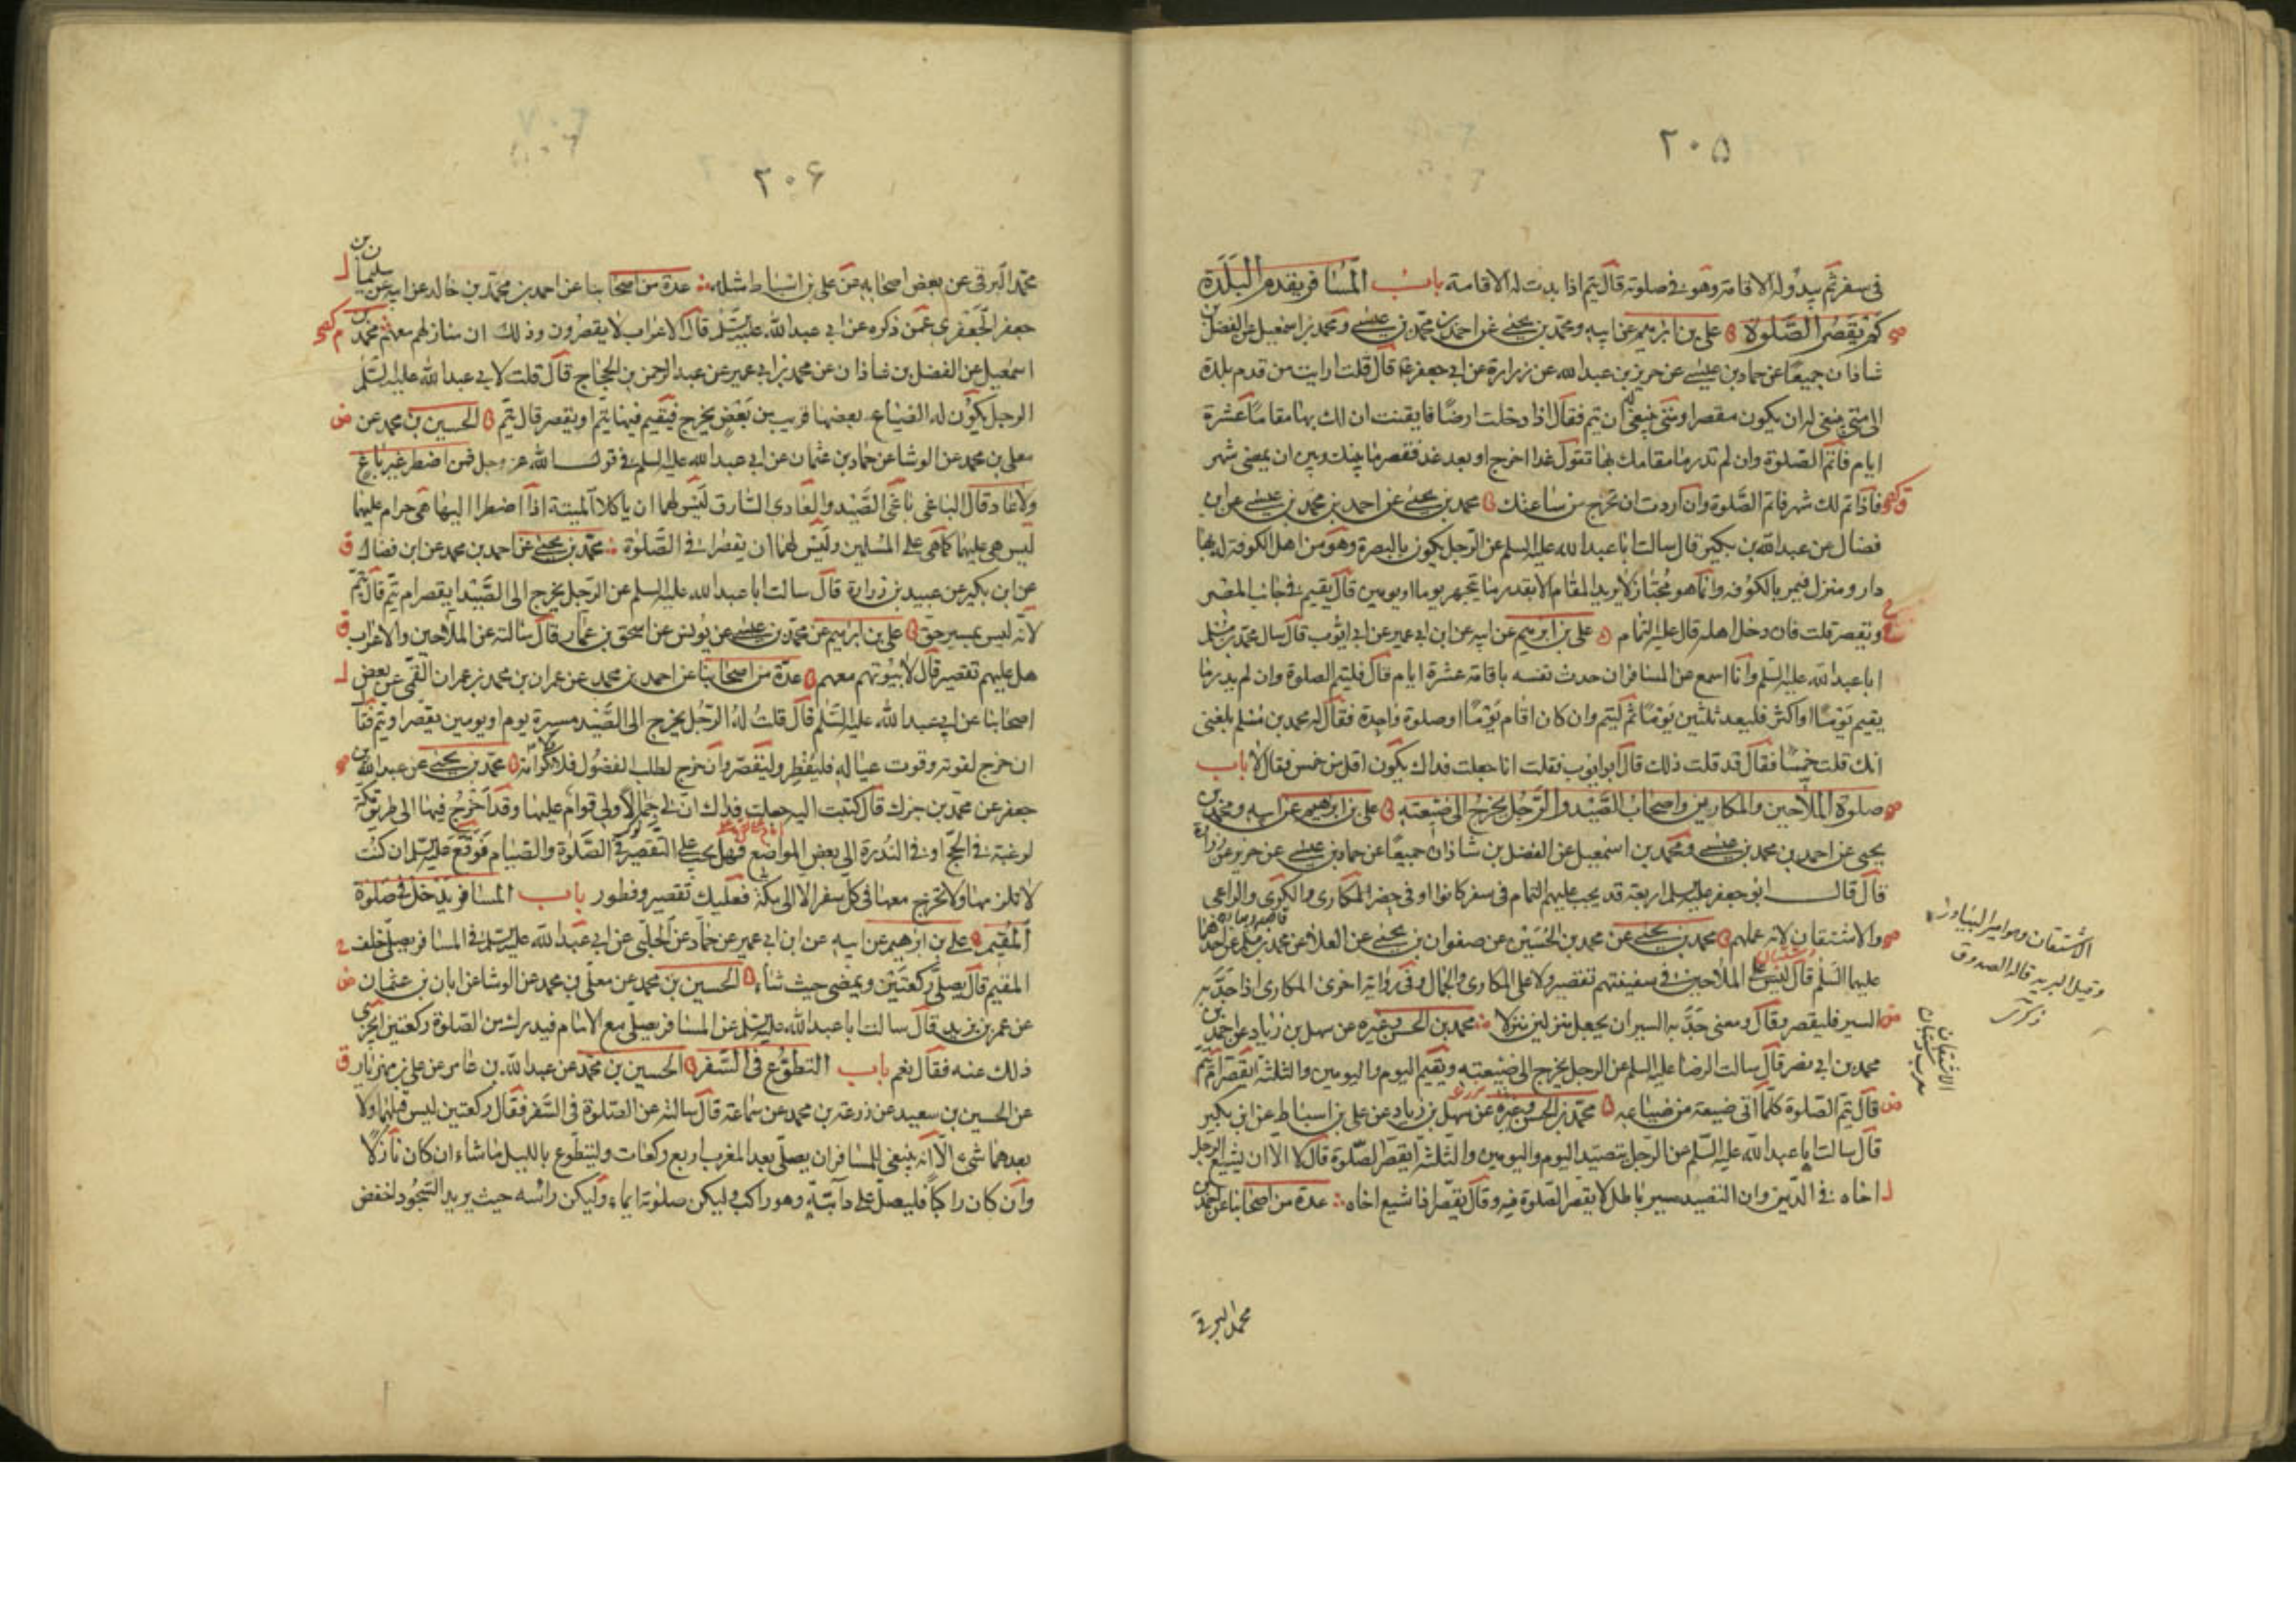 ٢٠۵
فى سفر ثم يبدو له الاقامة وهو فى صلوته قال يتم اذا بدت له الاقامة باب المسافر يقدم البلدة
كم يقصر الصلوة على بن ابرهيم عن ابيه ومحمد بن يحيى عن احمد بن محمد بن عيسى ومحمد بن اسمعيل عن الفضل بن
شاذان جميعا عن حماد بن عيسى عن حريز بن عبد الله عن زرارة عن ابى جعفر ع قال قلت ارايت من قدم بلدة
الى متى ينبغى له ان يكون مقصرا ومتى ينبغى له ان يتم فقال اذا دخلت ارضا فايقنت ان لك بها مقاما عشرة
ايام فاتم الصلوة وان لم تدر ما مقامك بها تقول غدا اخرج او بعد غد فقصر ما بينك وبين ان يمضى شهر
فاذا تم لك شهر فاتم الصلوة وان اردت ان تخرج من ساعتك محمد بن يحيى عن احمد بن محمد بن عيسى عن ابن
فضال عن عبد الله بن بكير قال سالت ابا عبد الله عليه السلم عن الرجل يكون بالبصرة وهو من اهل الكوفة له بها
دار ومنزل فيمر بالكوفه وانما هو مجتاز لا يريد المقام الا بقدر ما يتجهز يوما او يومين قال يقيم فى جانب المصر
ويقصر قلت فان دخل اهله قال عليه التمام على بن ابرهيم عن ابيه عن ابن ابى عمير عن ابى ايوب قال سال محمد بن مسلم
ابا عبد الله عليه السلم وانا اسمع عن المسافر ان حدث نفسه باقامة عشرة ايام قال فليتم الصلوة وان لم يدر ما
يقيم يوما او اكثر فليعد ثلثين يوما ثم ليتم وان كان اقام يوما او صلوة واحدة فقال له محمد بن مسلم بلغنى
انك قلت خمسا فقال قد قلت ذلك قال ابو ايوب فقلت انا جعلت فداك يكون اقل من خمس فقال لا باب
صلوة الملاحين والمكارين واصحاب الصيد والرجل يخرج الى ضيعته على بن ابرهيم عن ابيه ومحمد بن
يحيى عن احمد بن محمد بن عيسى ومحمد بن اسمعيل عن الفضل بن شاذان جميعا عن حماد بن عيسى عن حريز عن زرارة
قال قال ابو جعفر عليه السلم اربعة قد يجب عليهم التمام فى سفر كانوا او فى حضر المكارى والكرى والراعى
والاشتقان لانه عملهم محمد بن يحيى عن محمد بن الحسين عن صفوان بن يحيى عن العلا عن محمد بن مسلم عن احدهما
عليهما السلم قال ليس على الملاحين فى سفينتهم تقصير ولا على المكارى والجمال وفى رواية اخرى المكارى اذا جد به
السير فليقصر وقال ومعنى جد به السير ان يجعل منزلين منزلا محمد بن الحسن وغيره عن سهل بن زياد عن احمد بن
محمد بن ابى نصر قال سالت الرضا عليه السلم عن الرجل يخرج الى ضيعته ويقيم اليوم واليومين والثلثة ايقصر ام يتم
قال يتم الصلوة كلما اتى ضيعة من ضياعه محمد بن الحسن وغيره عن سهل بن زياد عن على بن اسباط عن ابن بكير
قال سالت ابا عبد الله عليه السلم عن الرجل يتصيد اليوم واليومين والثلثة ايقصر الصلوة قال لا الا ان يشيع الرجل
اخاه فى الدين وان التصيد مسير باطل لا يقصر الصلوة فيه وقال يقصر اذا شيع اخاه عدة من اصحابنا عن احمد بن
محمد البرقى
الاشتقان وهو امير البيادر
وقيل البريد قاله الصدوق
ذكرى
الاشتقان
معرب دشتبان
٢٠۶
محمد البرقى عن بعض اصحابه عن على بن اسباط مثله عدة من اصحابنا عن احمد بن محمد بن خالد عن ابيه عن سليمان بن
جعفر الجعفرى عمن ذكره عن ابى عبد الله عليه السلم قال الاعراب لا يقصرون وذلك ان منازلهم معهم محمد بن
اسمعيل عن الفضل بن شاذان عن محمد بن ابى عمير عن عبد الرحمن بن الحجاج قال قلت لابى عبد الله عليه السلم
الرجل يكون له الضياع بعضها قريب من بعض يخرج فيقيم فيها يتم او يقصر قال يتم الحسين بن محمد عن
معلى بن محمد عن الوشا عن حماد بن عثمان عن ابى عبد الله عليه السلم فى قول الله عز وجل فمن اضطر غير باغ
ولا عاد قال الباغى باغى الصيد والعادى السارق ليس لهما ان ياكلا الميتة اذا اضطرا اليها هى حرام عليهما
ليس هى عليهما كما هى على المسلمين وليس لهما ان يقصرا فى الصلوة محمد بن يحيى عن احمد بن محمد عن ابن فضال
عن ابن بكير عن عبيد بن زرارة قال سالت ابا عبد الله عليه السلم عن الرجل يخرج الى الصيد ايقصر ام يتم قال يتم
لانه ليس بمسير حق على بن ابرهيم عن محمد بن عيسى عن يونس عن اسحق بن عمار قال سالته عن الملاحين والاعراب
هل عليهم تقصير قال لا بيوتهم معهم عدة من اصحابنا عن احمد بن محمد عن عمران بن محمد بن عمران القمى عن بعض
اصحابنا عن ابى عبد الله عليه السلم قال قلت له الرجل يخرج الى الصيد مسيرة يوم او يومين يقصر او يتم فقال
ان خرج لقوته وقوت عياله فليفطر وليقصر وان خرج لطلب الفضول فلا ولا كرامة محمد بن يحيى عن عبد الله بن
جعفر عن محمد بن جزك قال كتبت اليه جعلت فداك ان لى جمالا ولى قوام عليها وقد اخرج فيها الى طريق مكة
لرغبة فى الحج او فى الندرة الى بعض المواضع فهل يجب على التقصير فى الصلوة والصيام فوقع عليه السلم ان كنت
لا تلزمها ولا تخرج معها فى كل سفر الا الى مكة فعليك تقصير وفطور باب المسافر يدخل فى صلوة
المقيم على بن ابرهيم عن ابيه عن ابن ابى عمير عن حماد عن الحلبى عن ابى عبد الله عليه السلم فى المسافر يصلى خلف
المقيم قال يصلى ركعتين ويمضى حيث شاء الحسين بن محمد عن معلى بن محمد عن الوشا عن ابان بن عثمان
عن عمر بن يزيد قال سالت ابا عبد الله عليه السلم عن المسافر يصلى مع الامام فيدرك من الصلوة ركعتين ايجزى
ذلك عنه فقال نعم باب التطوع فى السفر الحسين بن محمد عن عبد الله بن عامر عن على بن مهزيار
عن الحسين بن سعيد عن زرعة بن محمد عن سماعة قال سالته عن الصلوة فى السفر فقال ركعتين ليس قبلهما ولا
بعدهما شىء الا انه ينبغى للمسافر ان يصلى بعد المغرب اربع ركعات وليتطوع بالليل ما شاء ان كان نازلا
وان كان راكبا فليصل على دابته وهو راكب وليكن صلوته ايماء وليكن راسه حيث يريد السجود اخفض